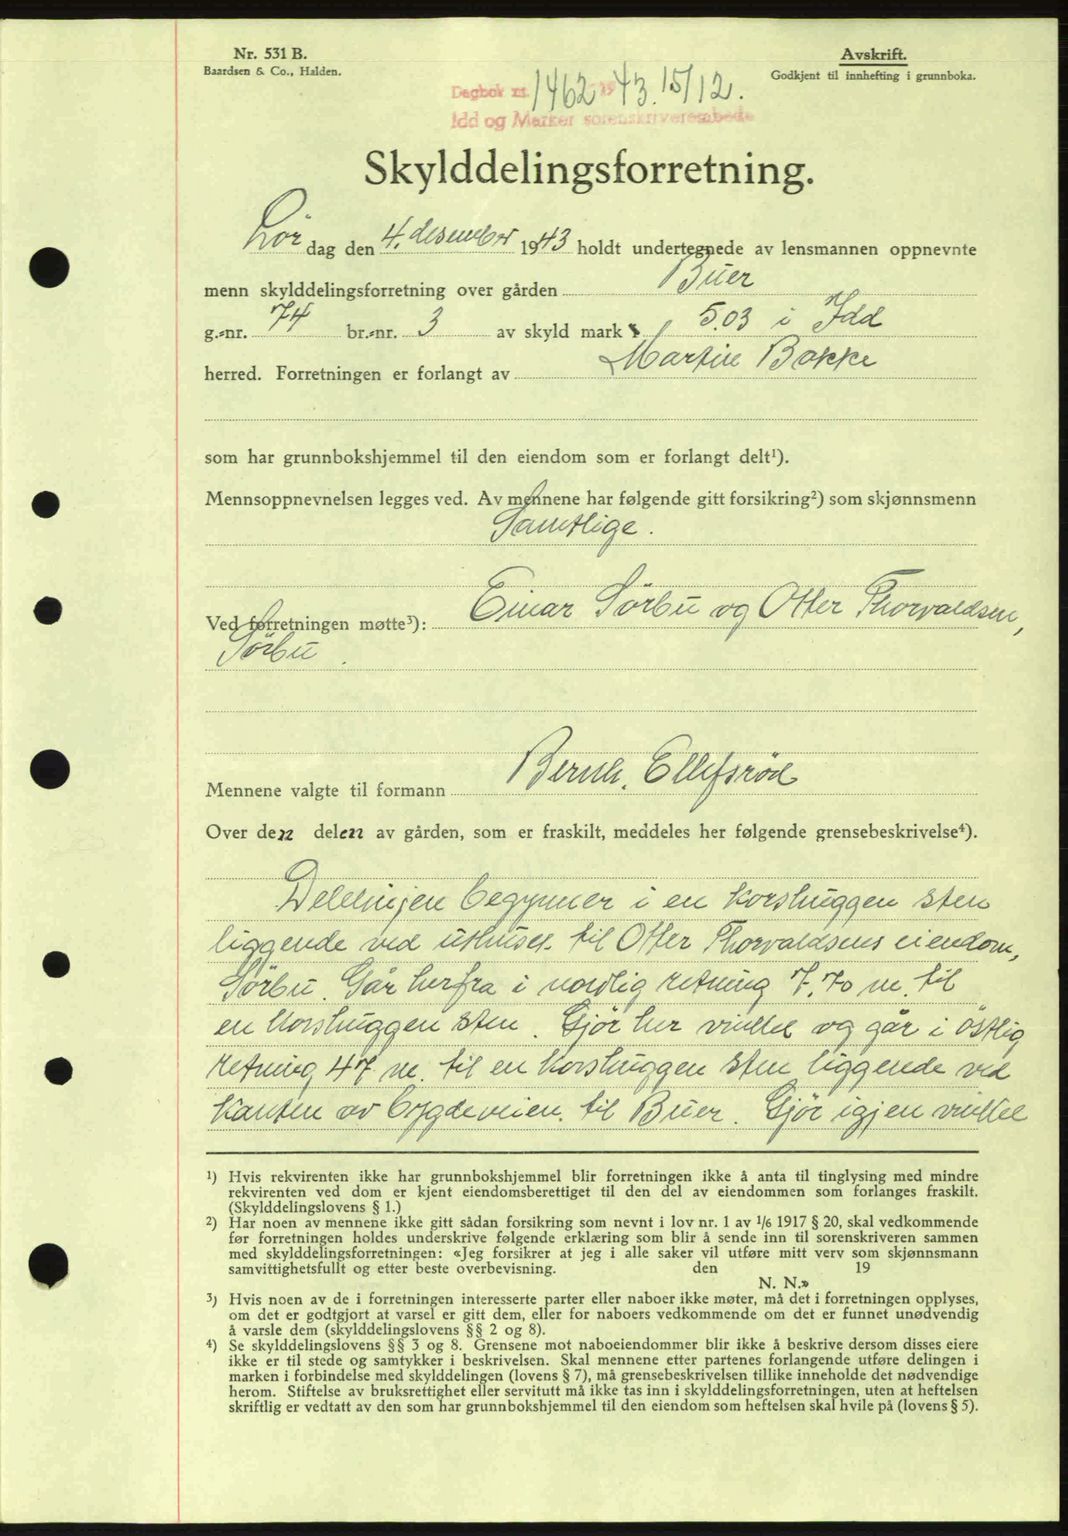 Nr. 531 B.
Baardsen & Co., Halden.
Avskrift.
Godkjent til innhefting i grunnboka.
Dagbok nr. 1462 1943. 15/12.
Idd og Marker sorenskriverembede
Skylddelingsforretning.
Lør dag den 4. desember 1943 holdt undertegnede av lensmannen oppnevnte
menn skylddelingsforretning over gården Buer
g.-nr. 74 br.-nr. 3 av skyld mark 5.03 i Idd
herred. Forretningen er forlangt av Martin Bakke
som har grunnbokshjemmel til den eiendom som er forlangt delt¹).
Mennsoppnevnelsen legges ved. Av mennene har følgende gitt forsikring²) som skjønnsmenn
Samtlige.
Ved forretningen møtte³): Einar Sörbu og Otter Thorvaldsen,
Sörbu.
Mennene valgte til formann Bernh. Ellefsrød
Over den delen av gården, som er fraskilt, meddeles her følgende grensebeskrivelse⁴).
Delelinjen begynner i en korshuggen sten
liggende ved uthuset til Otter Thorvaldsens eiendom,
Sörbu. Går herfra i nordlig retning 7.70 m. til
en korshuggen sten. Gjör her vinkel og går i östlig
retning 47 m. til en korshuggen sten liggende ved
kanten av bygdeveien til Buer. Gjör igjen vinkel
¹) Hvis rekvirenten ikke har grunnbokshjemmel blir forretningen ikke å anta til tinglysing med mindre
rekvirenten ved dom er kjent eiendomsberettiget til den del av eiendommen som forlanges fraskilt.
(Skylddelingslovens § 1.)
²) Har noen av mennene ikke gitt sådan forsikring som nevnt i lov nr. 1 av 1/6 1917 § 20, skal vedkommende
før forretningen holdes underskrive følgende erklæring som blir å sende inn til sorenskriveren sammen
med skylddelingsforretningen: «Jeg forsikrer at jeg i alle saker vil utføre mitt verv som skjønnsmann
samvittighetsfullt og etter beste overbevisning. den 19
N. N.»
³) Hvis noen av de i forretningen interesserte parter eller naboer ikke møter, må det i forretningen opplyses,
om det er godtgjort at varsel er gitt dem, eller for naboers vedkommende om det er funnet unødvendig
å varsle dem (skylddelingslovens §§ 2 og 8).
⁴) Se skylddelingslovens §§ 3 og 8. Grensene mot naboeiendommer blir ikke å beskrive dersom disses eiere
ikke er til stede og samtykker i beskrivelsen. Skal mennene etter partenes forlangende utføre delingen i
marken i forbindelse med skylddelingen (lovens § 7), må grensebeskrivelsen tillike inneholde det nødvendige
herom. Stiftelse av bruksrettighet eller servitutt må ikke tas inn i skylddelingsforretningen, uten at heftelsen
skriftlig er vedtatt av den som har grunnbokshjemmel til den eiendom som heftelsen skal hvile på (lovens § 5).